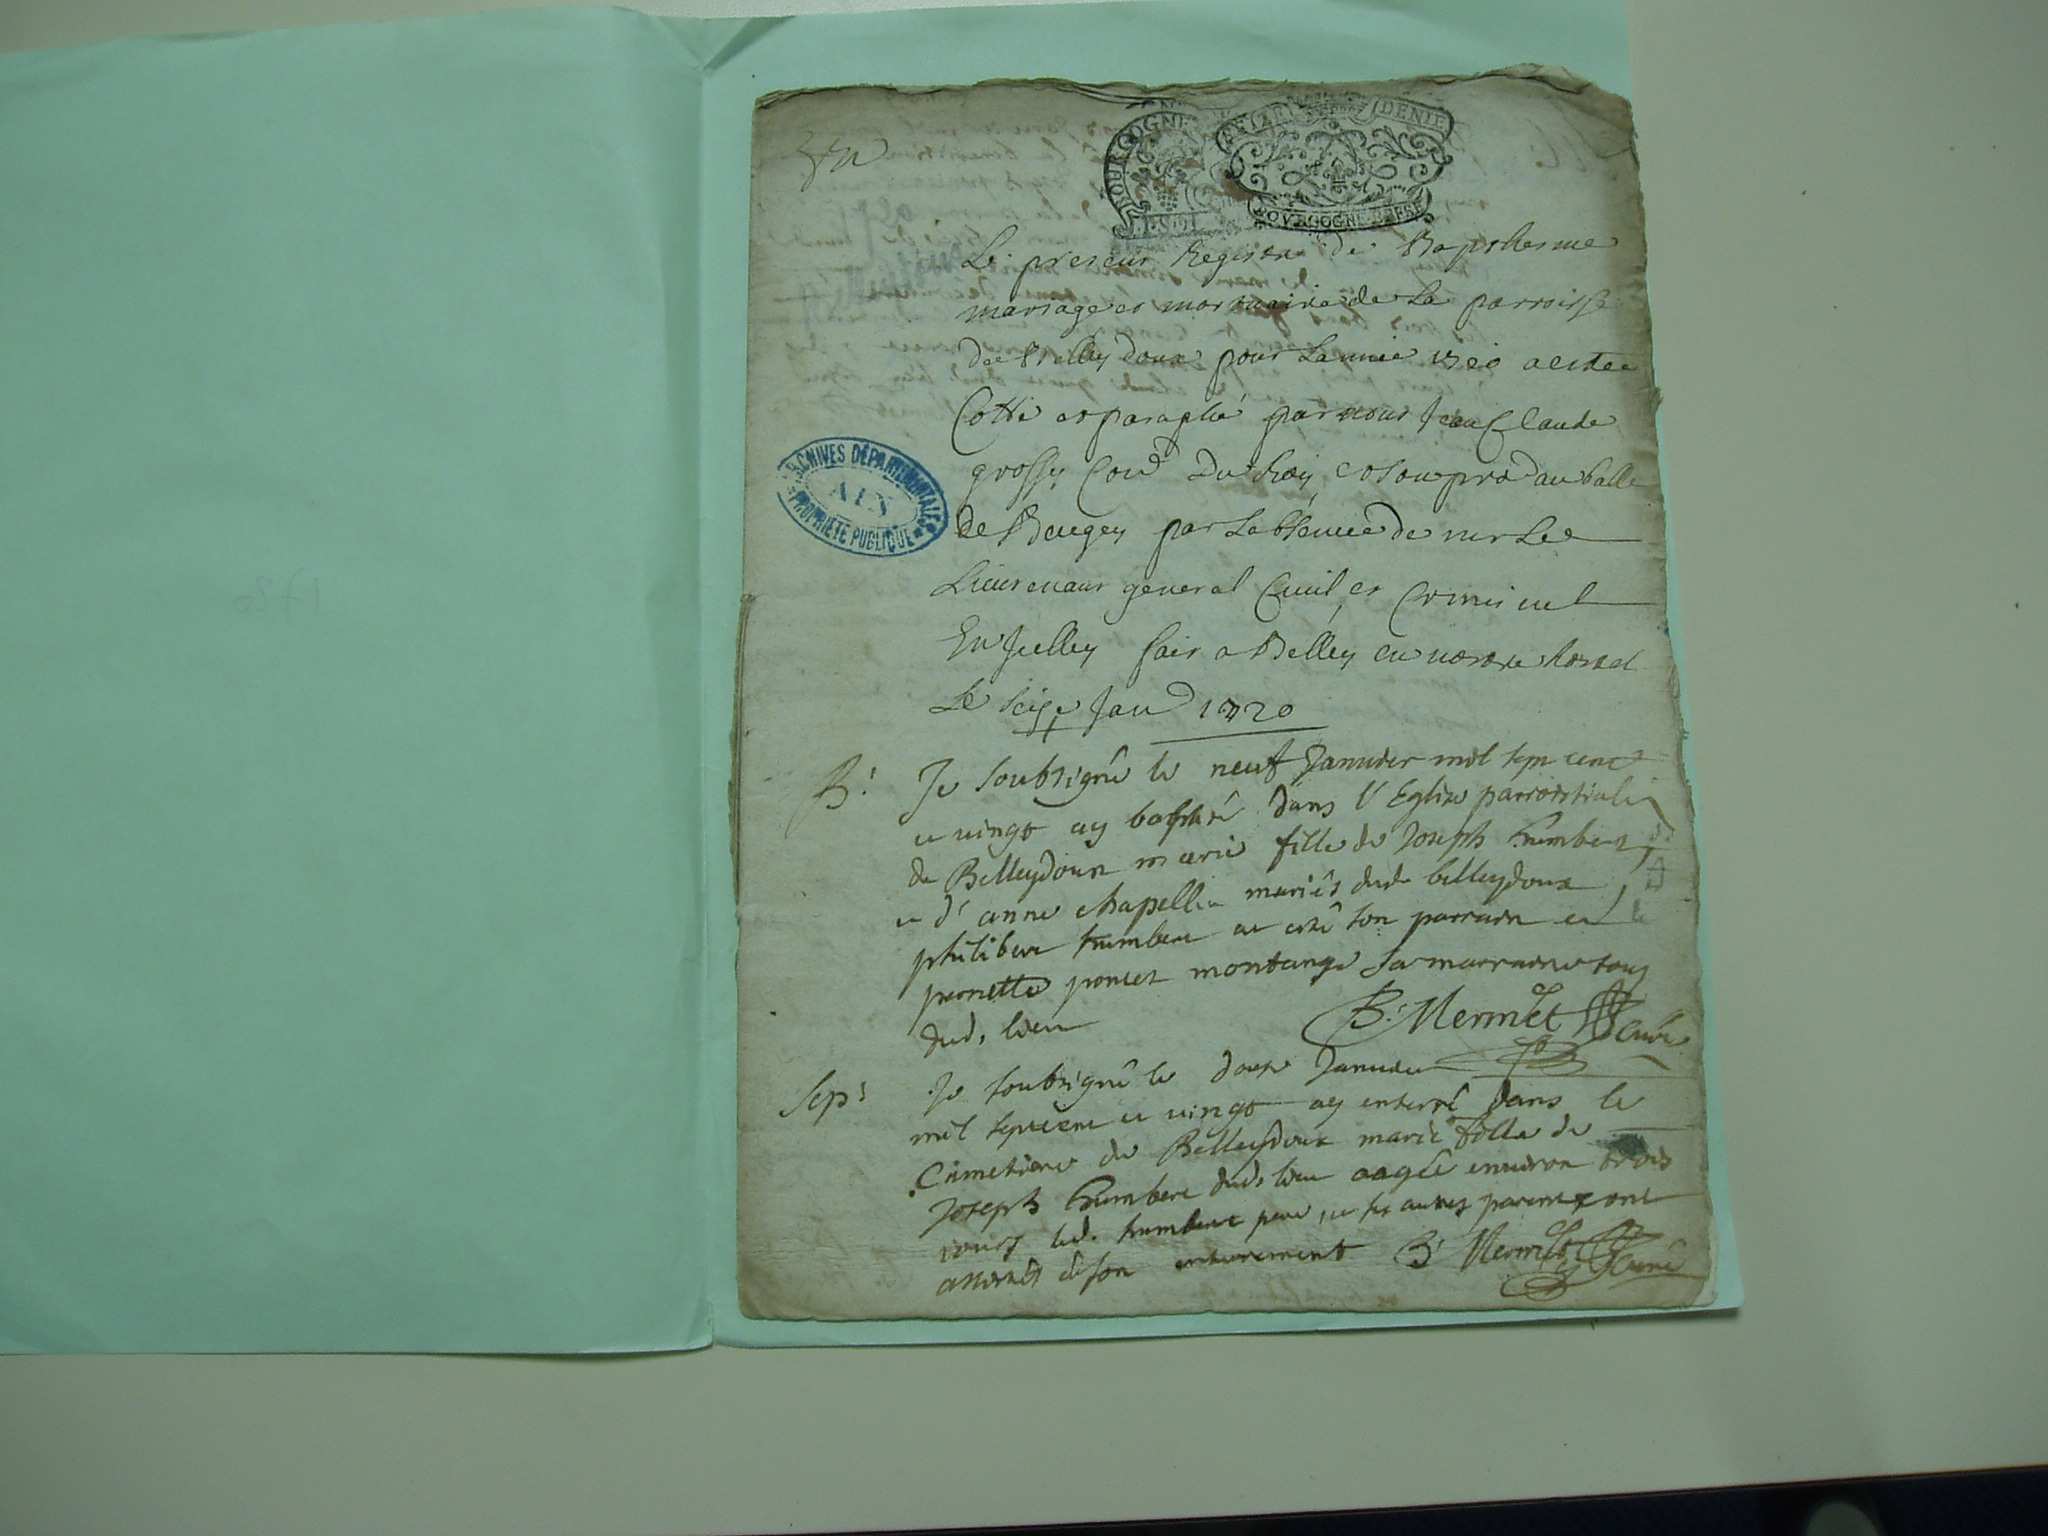 BOURGOGNE
DENIE
BOVRGOGNE BRESSE
Le present Registre de Baptesme
mariage et mortuaire de la parroisse
de Belleydoux pour Lannée 1720 a esté
Cotté et paraphé par nous Jean Claude
grossy Con.er Du Roy et son pro au balle
de Beugey par Labsence de mr Le
Lieutenant general Civil et Criminel
fait a Belley en nostre hostel
Le seize Janv 1720
ARCHIVES DÉPARTEMENTALES
AIN
PROPRIÉTÉ PUBLIQUE
1720
B: Je soubsigné le neuf Januier mil sept cent
et vingt ay baptisé dans l'Eglise parroissiale
de Belleydoux marie fille de Joseph humbert
et d'anne chapellu mariés dud belleydoux,
philibert humbert at esté son parrain et
pernette poncet montange sa marraine tous
dud. lieu B. Mermet curé
Sep: Je soubsigné le douze Januier
mil sept cent et vingt ay enterré dans le
Cimetiere de Belleydoux marie fille de
Joseph humbert dud. lieu aagée enuiron trois
jours led. humbert pere, et ses autres parents ont
assistés à son enterrement B. Mermet curé